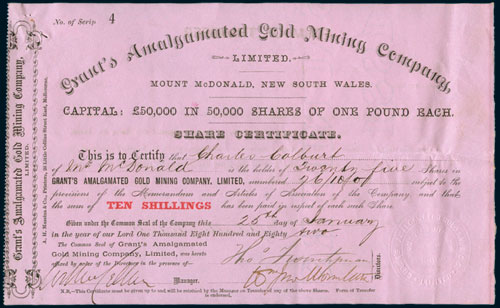 No. of Scrip 4
Grant's Amalgamated Gold Mining Company,
LIMITED.
MOUNT McDONALD, NEW SOUTH WALES.
CAPITAL: £50,000 IN 50,000 SHARES OF ONE POUND EACH.
SHARE CERTIFICATE.
This is to Certify that Charles Colburt
of Mt. McDonald is the holder of Twenty five Shares in
GRANT'S AMALGAMATED GOLD MINING COMPANY, LIMITED, numbered subject to the
provisions of the Memorandum and Articles of Association of the Company and that
the sum of TEN SHILLINGS has been paid in respect of each such Share.
Given under the Common Seal of the Company this 25th day of January
in the year of our Lord One Thousand Eight Hundred and Eighty two
The Common Seal of Grant's Amalgamated
Gold Mining Company, Limited, was hereto
affixed by order of the Directors in the presence of—
Manager.
Directors.
N.B.—This Certificate must be given up to and will be retained by the Manager on Transfer of any of the above Shares. Form of Transfer
is endorsed.
Grant's Amalgamated Gold Mining Company,
LIMITED.